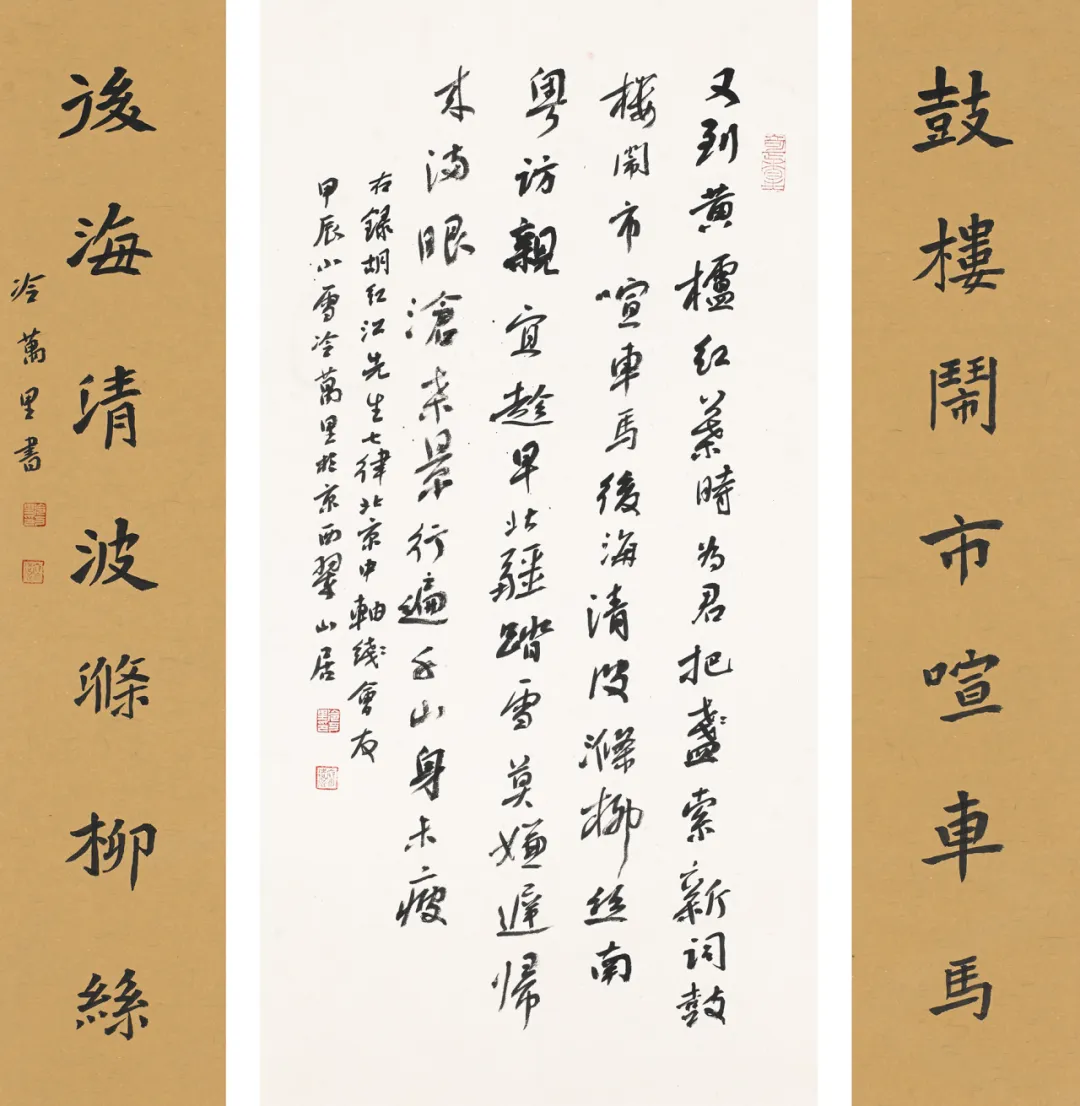 鼓樓鬧市喧車馬
又到黄櫨红葉時为君把盞索新词鼓
樓闹市喧車馬後海清波滌柳丝南
粤访親宜趁早北疆踏雪莫嫌遲帰
来满眼滄桒景行遍千山身未瘦
右録胡红江先生七律北京中軸綫會友
甲辰小雪冷萬里於京西翠山居
後海清波滌柳絲
冷萬里書